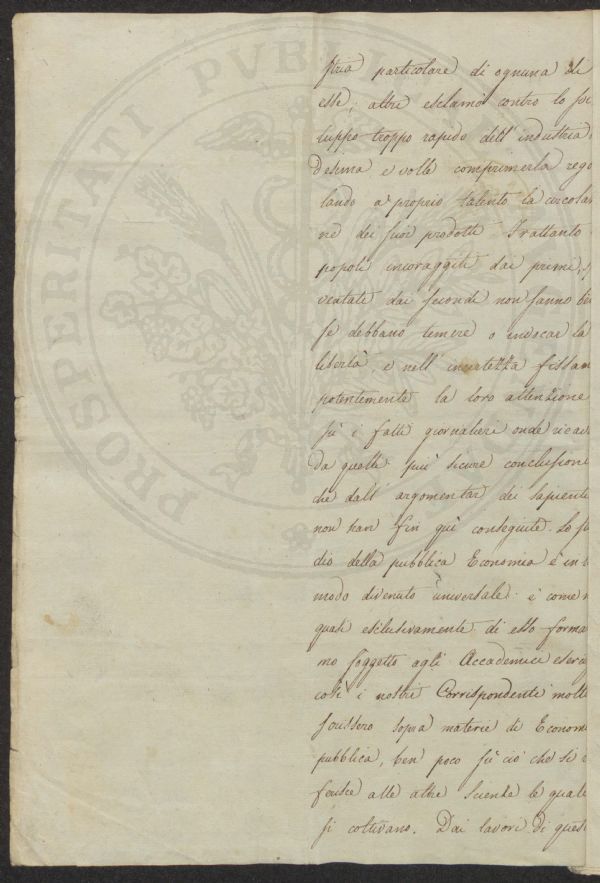 PROSPERITATI PUBLI
stria particolare di ognuna di
esse; altri esclamò contro lo svi
luppo troppo rapido dell'industria
e volle comprimerla rego
lando a' proprio talento la circola
ne dei suoi prodotti Frattanto
popoli incoraggiti dai primi, s
ventati dai secondi non sanno
se debbano temere o invocar la
libertà, e nell'incertezza fissan
potentemente la loro attenzione
sù i fatti giornalieri onde ricav
da quelli più sicure conclusioni
che dall'argomentar dei sapienti
non han fin quì conseguite. Lo stu
dio della pubblica Economia è in
modo divenuto universale. e come
quasi esclusivamente di esso forma
no soggetto agli Accademici eserci
così i nostri Corrispondenti molt
scrissero sopra materie di Econom
pubblica, ben' poco fù ciò che si
ferisce alle altre Scienze le quali
si coltivano. Dai lavori di quest